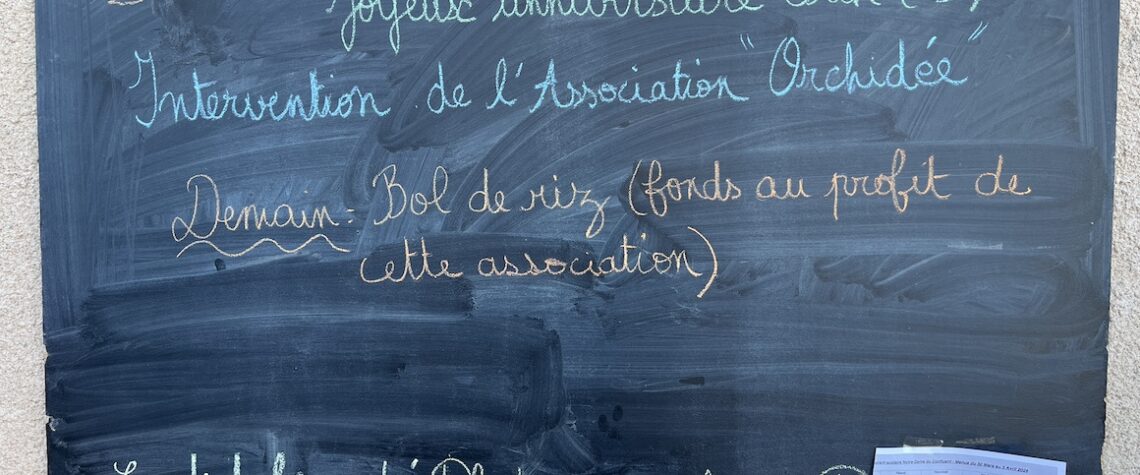 Joyeux anniversaire
Intervention de l'Association "Orchidée"
Demain : Bol de riz (fonds au profit de
cette association)